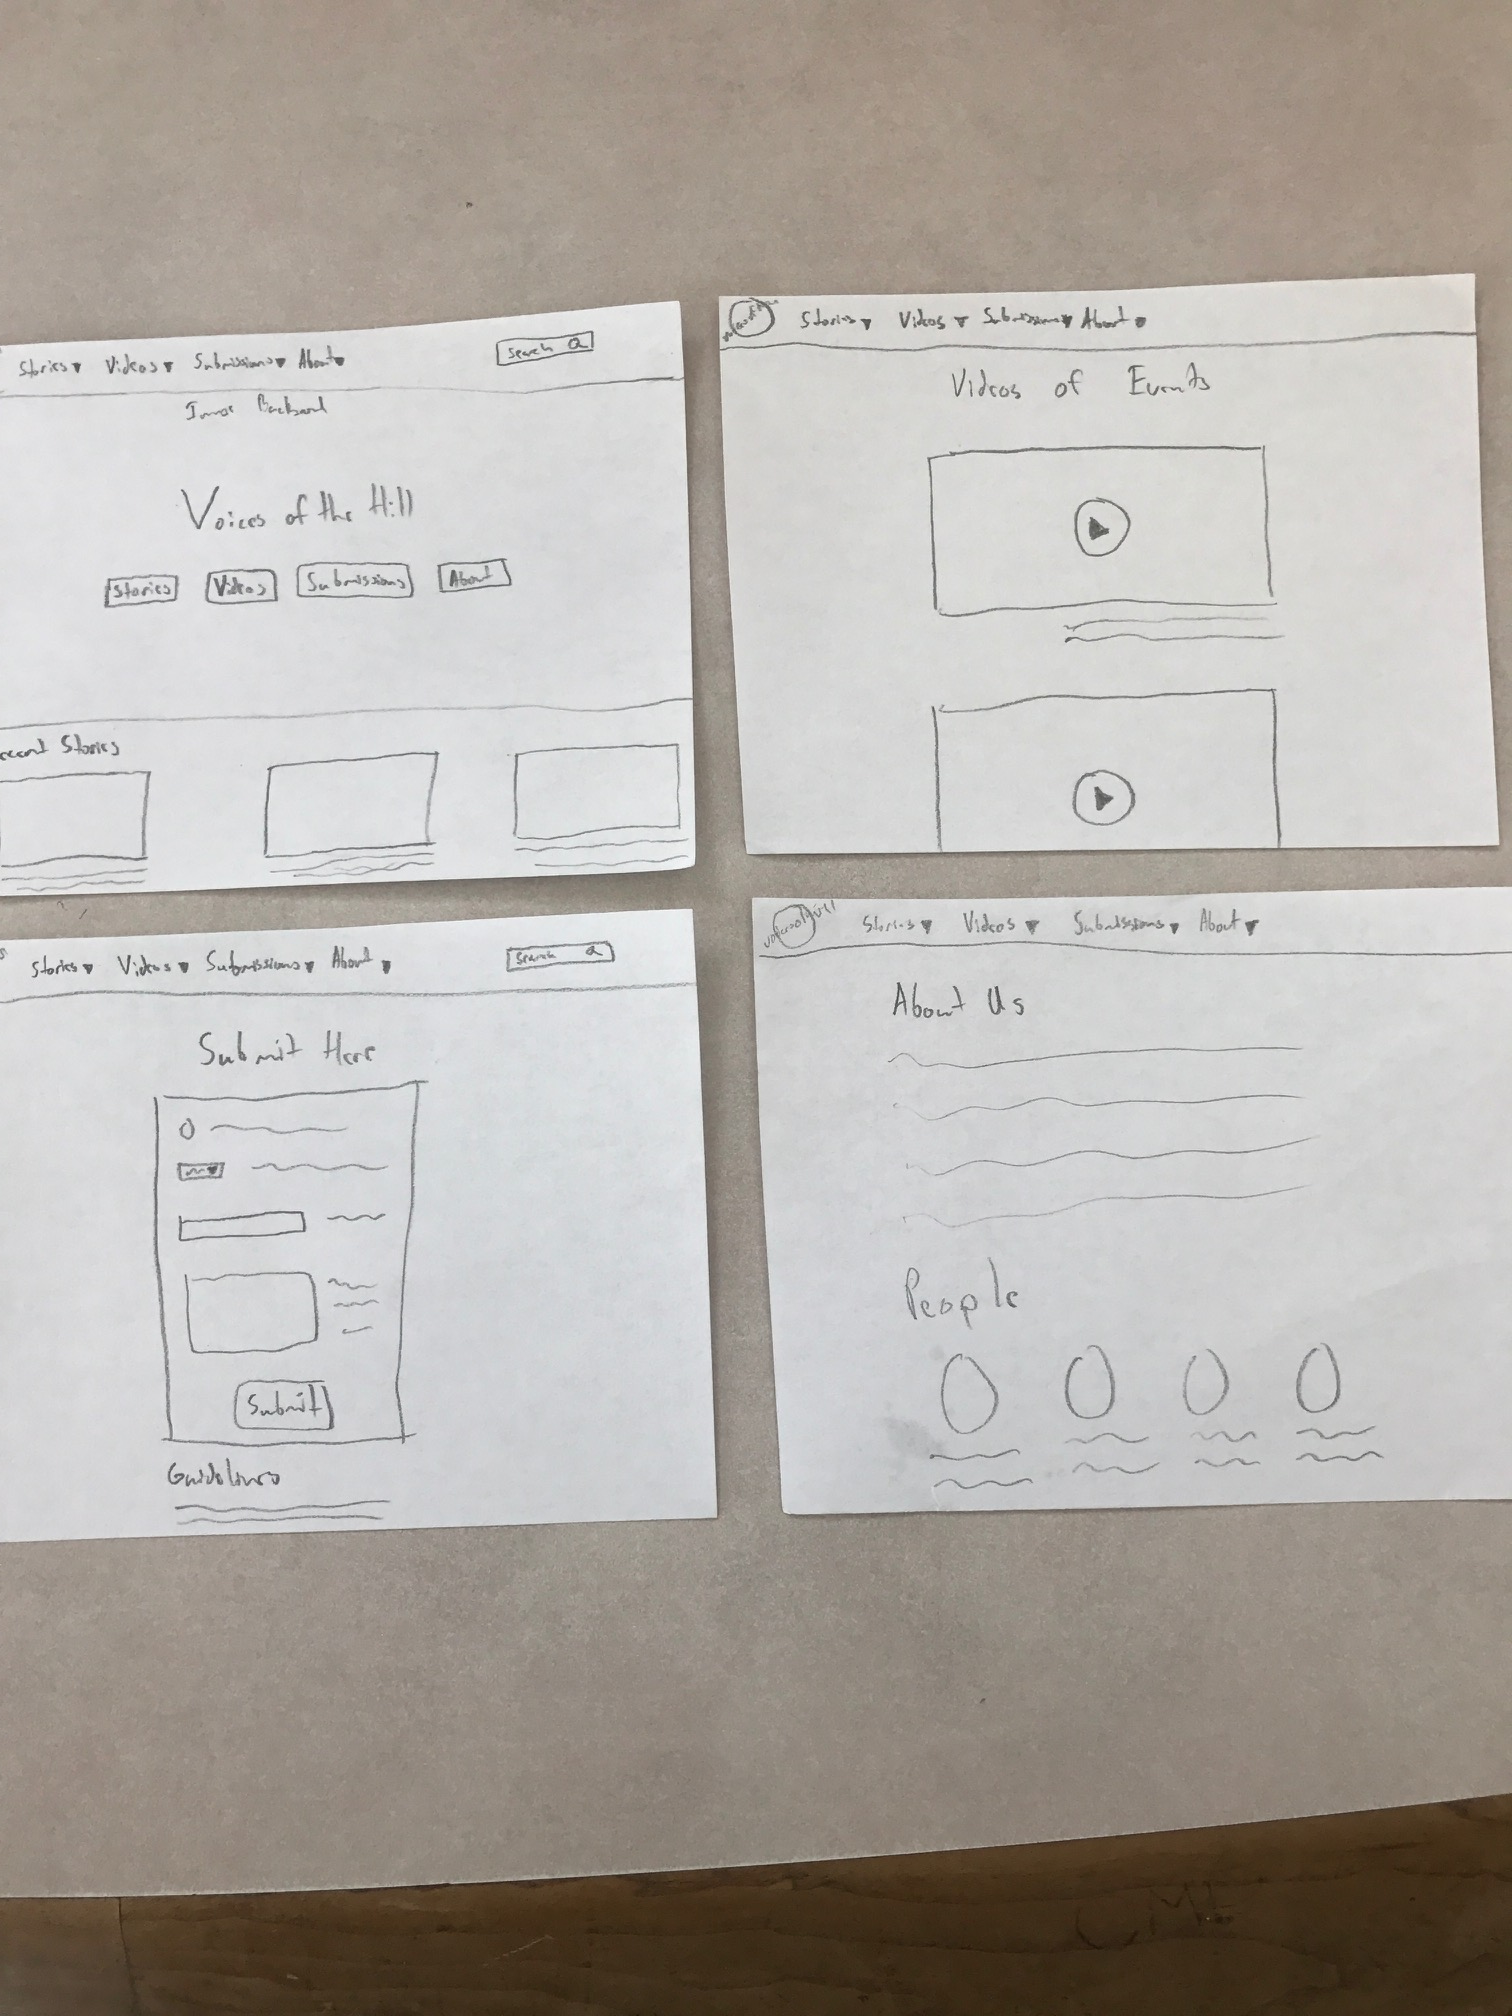 Stories Videos Submissions About
Search
Voices of the Hill
Stories Videos Submissions About
Recent Stories
Stories Videos Submissions About
Videos of Events
Stories Videos Submissions About
Search
Submit Here
Submit
Guidelines
Stories Videos Submissions About
About Us
People